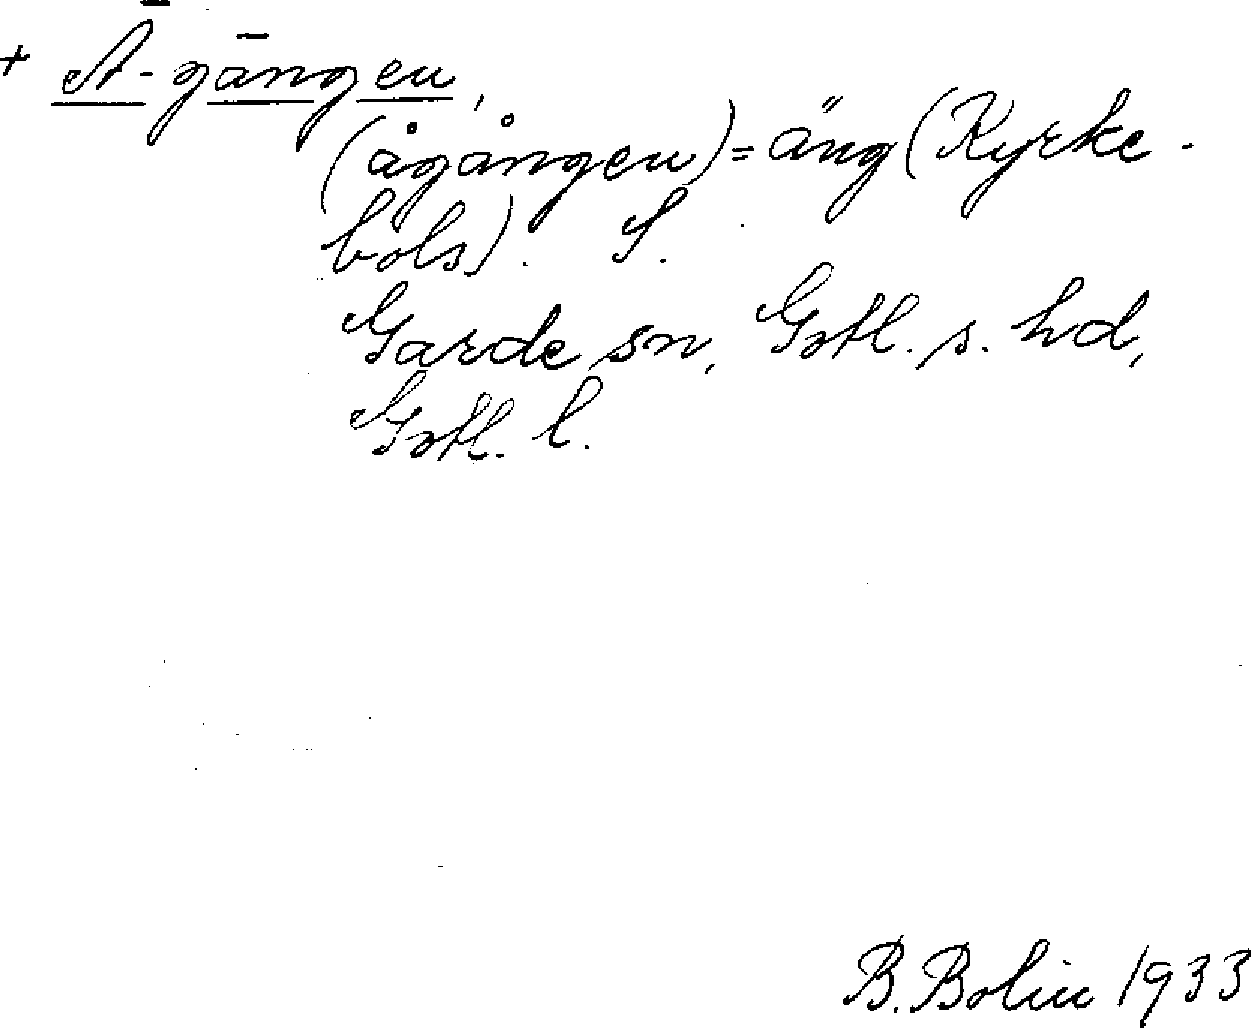 + Ā-gāngen,
(ågången) = äng (Kyrke-
bols). S.
Garde sn, Gotl. s. hd,
Gotl. l.
B. Bolin 1933